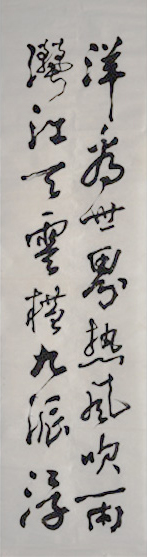 洋看世界热风吹雨
灑江天雲横九派浮